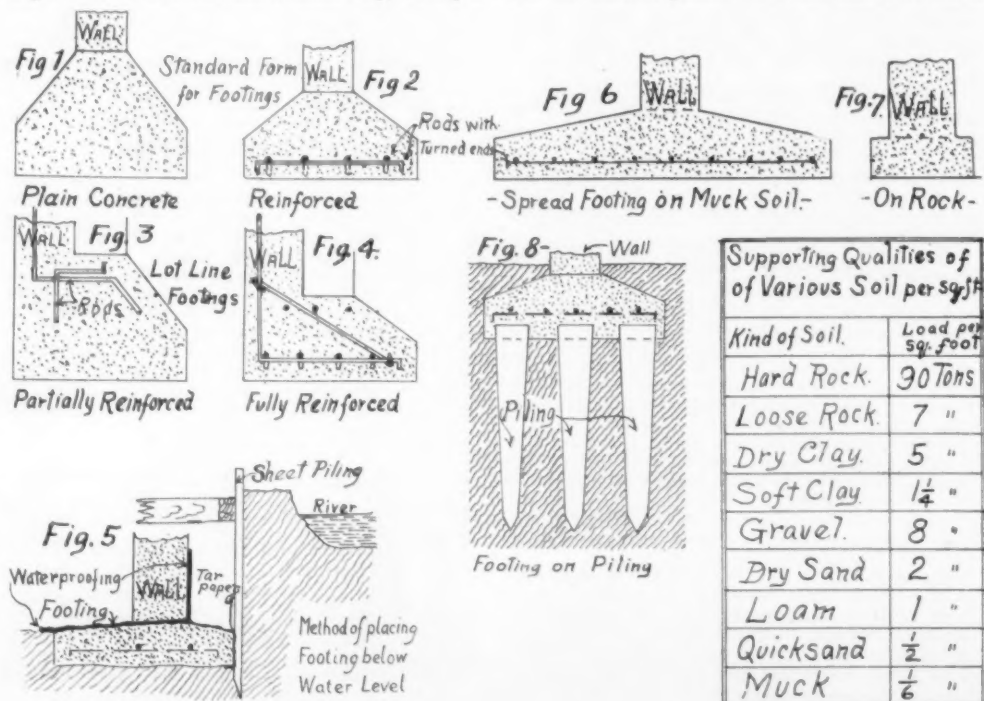 Fig 1
WALL
Plain Concrete
Standard Form
for Footings
Fig 2
WALL
Rods with
Turned ends
Reinforced
Fig 6
WALL
-Spread Footing on Muck Soil.-
Fig. 7
WALL
-On Rock-
Fig. 3
WALL
Rods
Lot Line
Footings
Partially Reinforced
Fig. 4.
WALL
Fully Reinforced
Fig. 8-
Wall
Piling
Footing on Piling
Fig. 5
Sheet Piling
River
Waterproofing
WALL
Tar
paper
Footing
Method of placing
Footing below
Water Level
Supporting Qualities of
of Various Soil per sq.ft
Kind of Soil. Load per
sq. foot
Hard Rock. 90 Tons
Loose Rock. 7 "
Dry Clay. 5 "
Soft Clay 1 1/4 "
Gravel. 8 "
Dry Sand 2 "
Loam 1 "
Quicksand 1/2 "
Muck 1/6 "